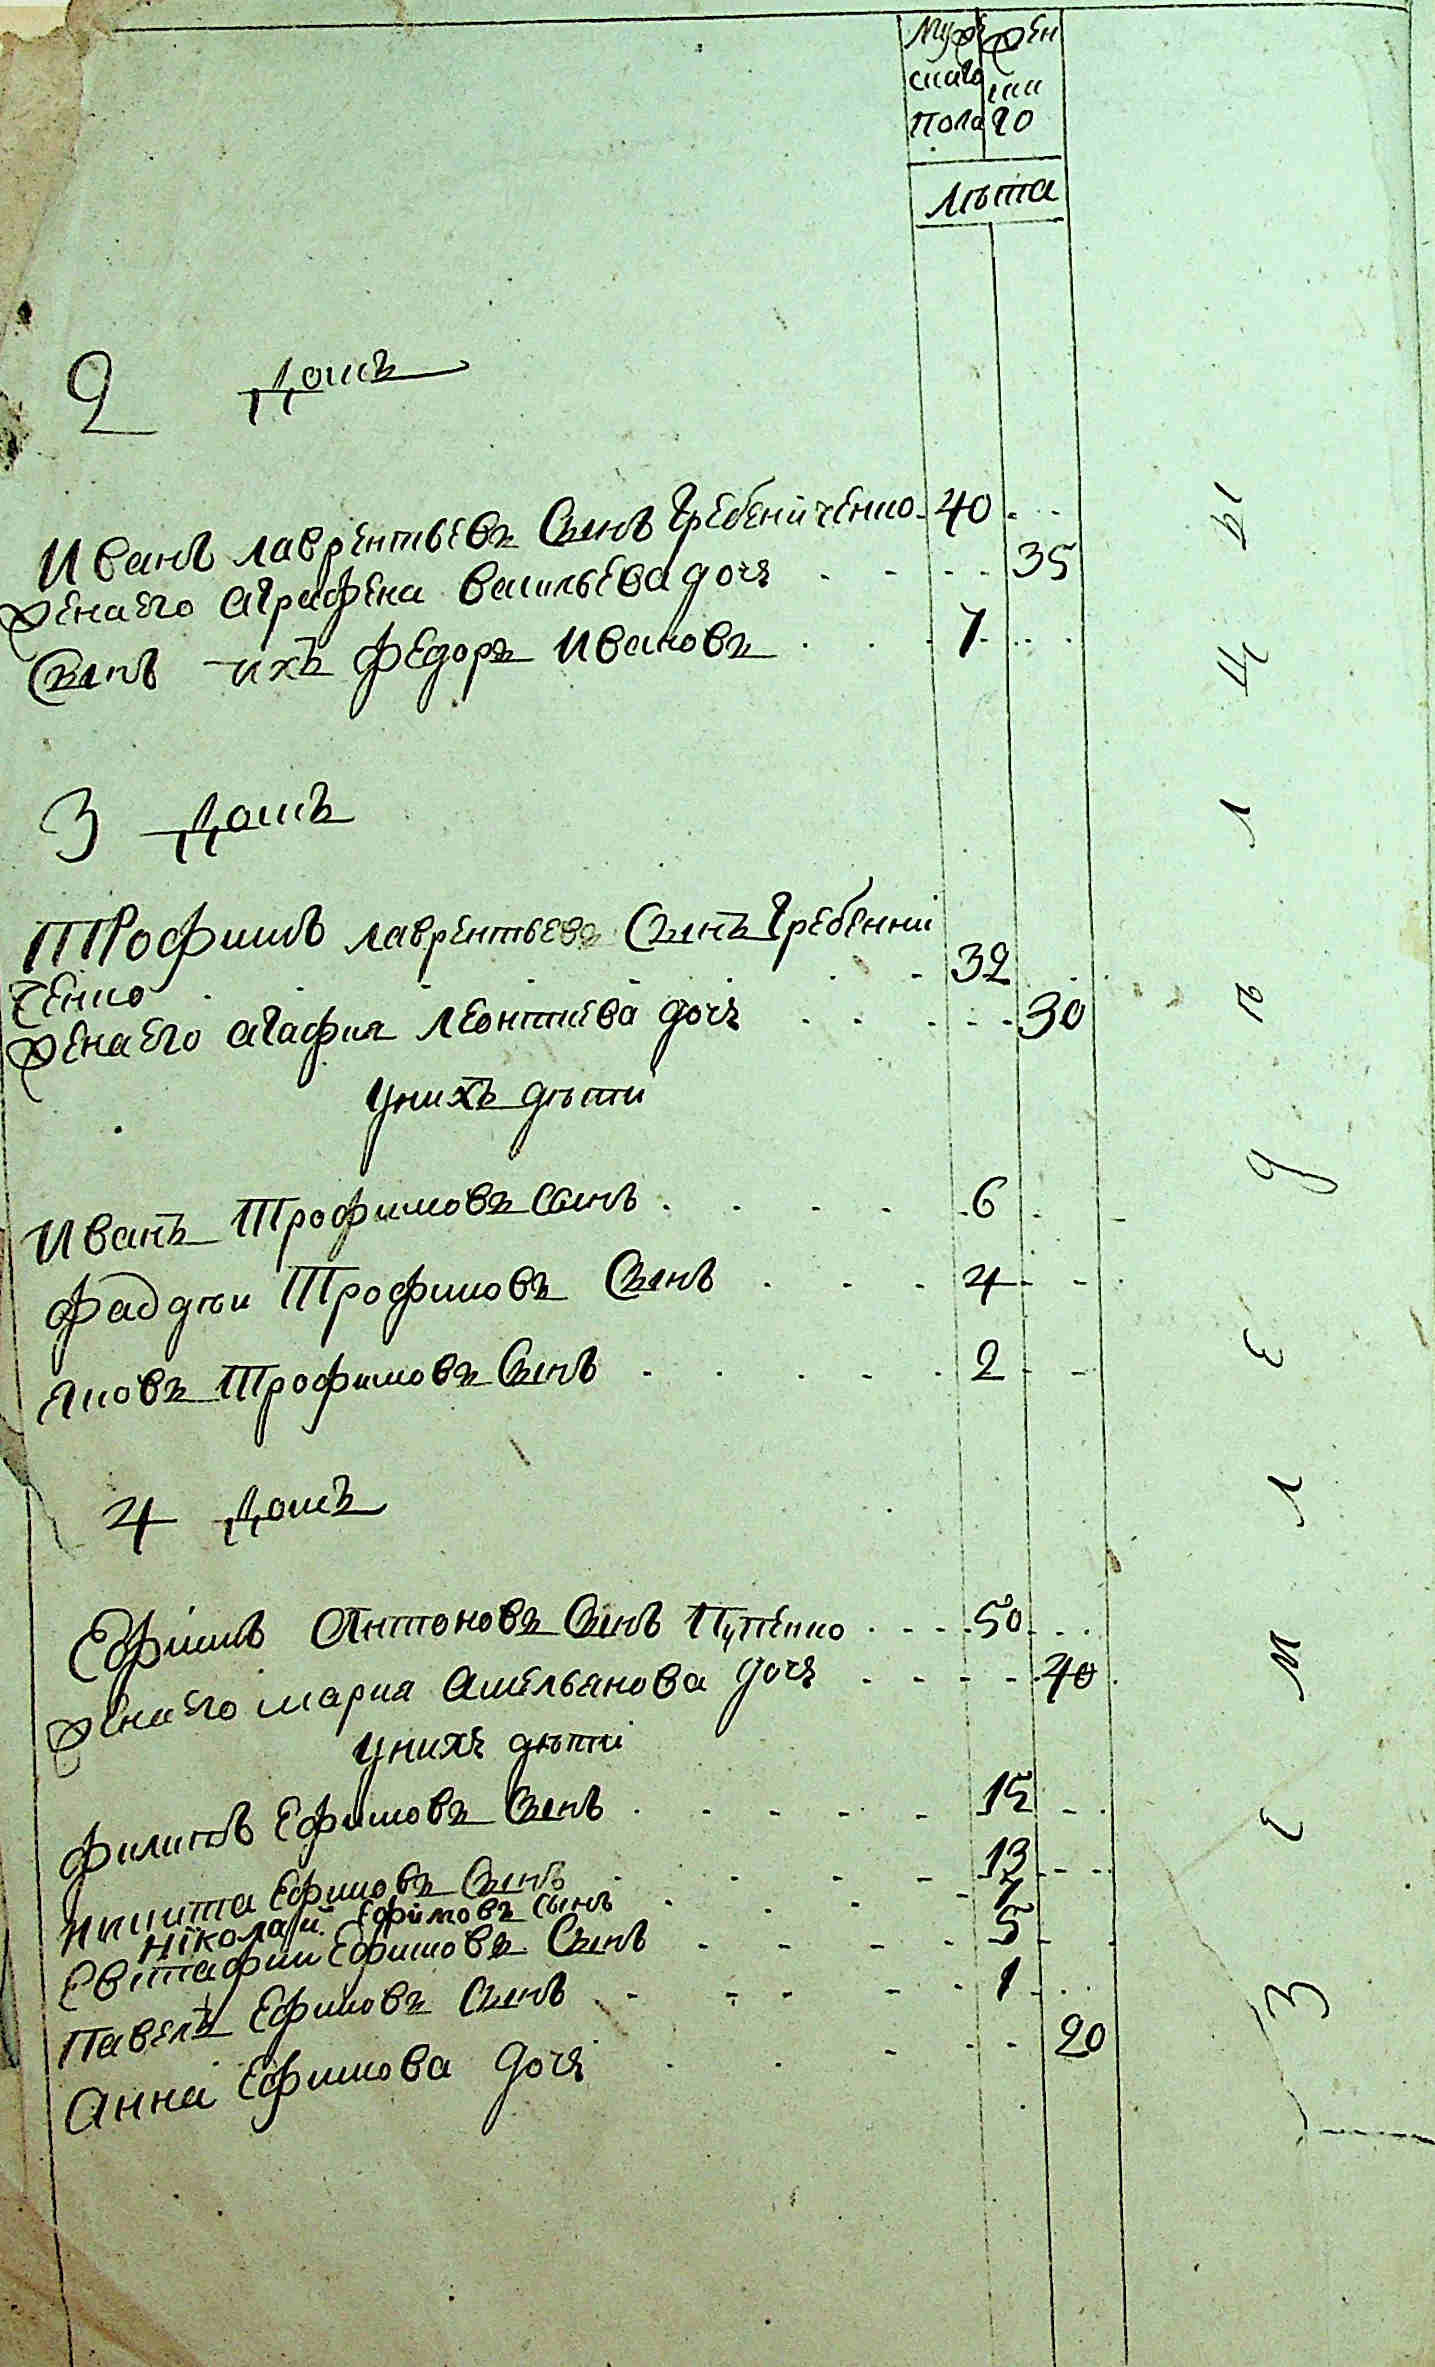 Муж жен
скаго ска
пола го
лѣта
2 Домъ
Иванъ лаврентьевъ Сынъ Гребениченко 40
жена его аграфена васильева дочь 35
Сынъ ихъ федоръ Ивановъ 7
3 Домъ
Трофимъ лаврентьевъ Сынъ Гребенни
ченко 32
жена его агафия леонтиева дочь 30
у нихъ дѣти
Иванъ Трофимовъ Сынъ 6
фаддѣи Трофимовъ Сынъ 4
яковъ Трофимовъ Сынъ 2
4 Домъ
Ефимъ Антоновъ Сынъ Пупенко 50
жена его мариа амельанова дочь 40
у нихъ дѣти
филипъ Ефимовъ Сынъ 15
никита Ефимовъ Сынъ 13
Ніколай Ефимовъ Сынъ 7
Евстафии Ефимовъ Сынъ 5
Павелъ Ефимовъ Сынъ 1
Анна Ефимова дочь 20
Земледѣлцы